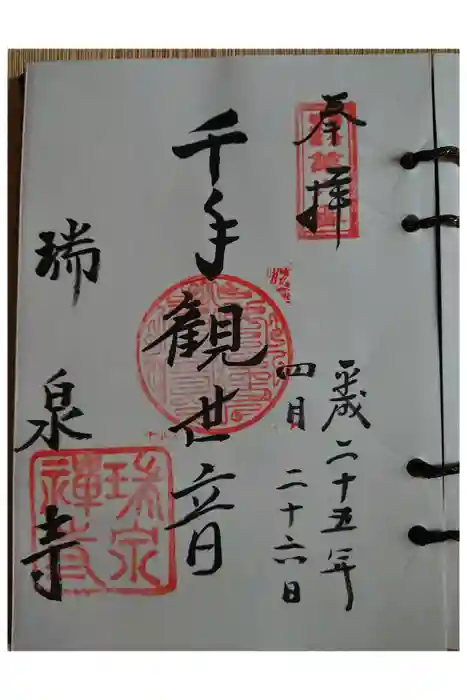 奉拝
平成二十五年
四月二十六日
千手観世音
瑞泉寺
瑞泉禅寺